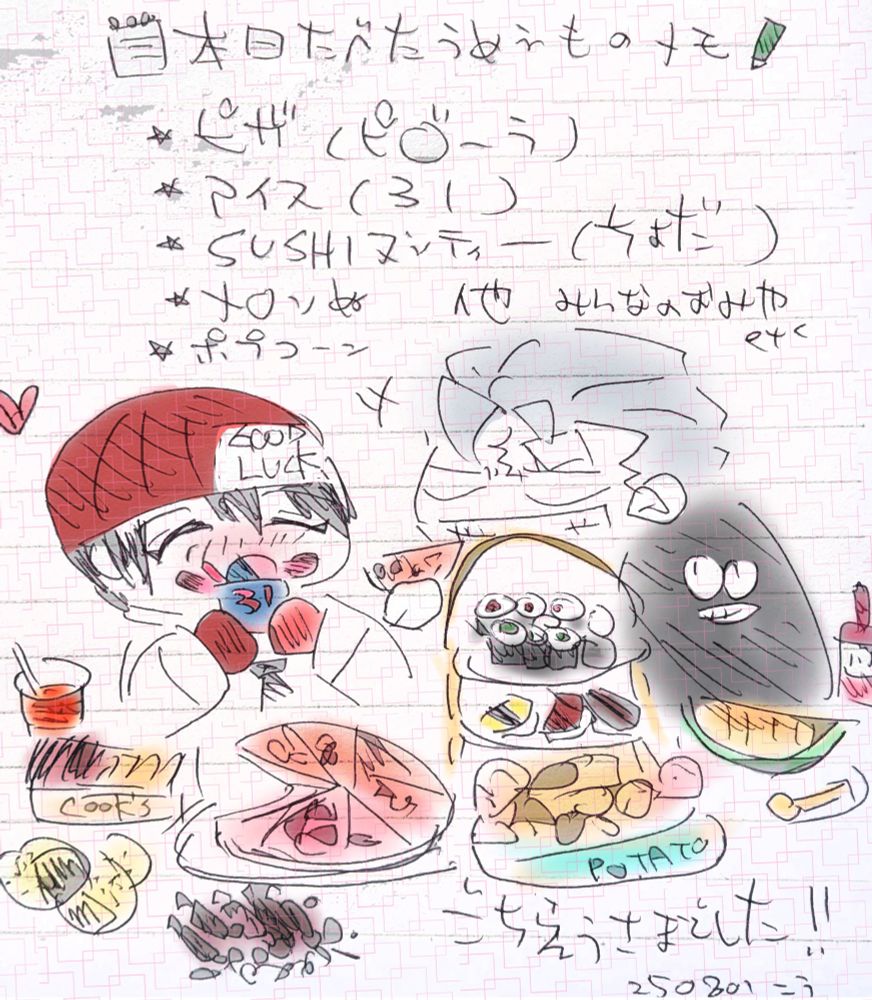 本日たべたうめぇものメモ
★ピザ(ピ○ーラ)
★アイス(31)
★SUSHIヌンティー(ちよだ)
★メロンぬ 他 みんなのおみや etc
★ポプコーン
GOOD LUCK
31
COOKS
POTATO
ごちそうさまでした!!
250801 こう